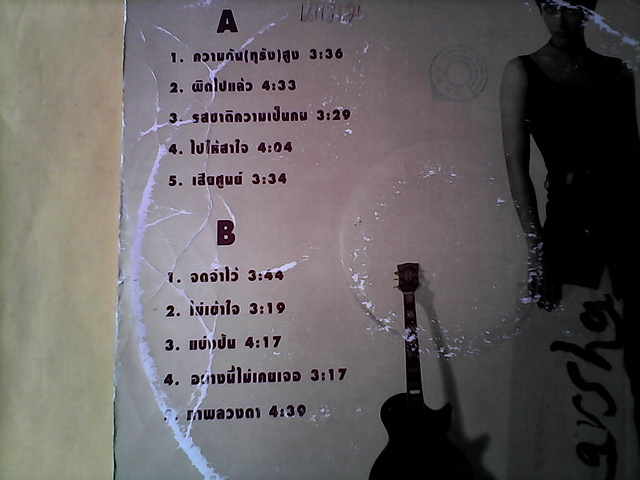 A
1. ความดัน(ทุรัง)สูง 3:36
2. ผิดไปแล้ว 4:33
3. รสชาติความเป็นคน 3:29
4. ไปให้สาใจ 4:04
5. เสียศูนย์ 3:34
B
1. จดจำไว้ 3:44
2. ไม่เข้าใจ 3:19
3. แบ่งปัน 4:17
4. อย่างนี้ไม่เคยเจอ 3:17
ภาพลวงตา 4:39